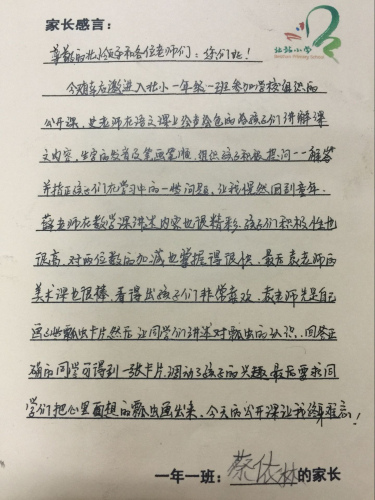 家长感言：
北站小学
尊敬的北小领导和各位老师们：您们好！
今天有幸应邀进入北小一年级一班参加学校组织的
公开课，史老师在语文课上绘声绘色的为孩子们讲解课
文内容、生字的发音及笔画笔顺，组织孩子积极提问一一解答
并指正孩子们在学习中的一些问题，让我恍然回到童年.
薛老师在数学课讲述内容也很精彩，孩子们积极性也
很高，对两位数的加减也掌握得很快，最后袁老师的
美术课也很棒，看得出孩子们非常喜欢，袁老师先是自己
画了些瓢虫卡片然后让同学们讲述对瓢虫的认识，回答正
确的同学可得到一张卡片，调动了孩子的兴趣，最后要求同
学们把心里面想的瓢虫画出来，今天的公开课让我终身难忘！
一年一班：蔡依林的家长